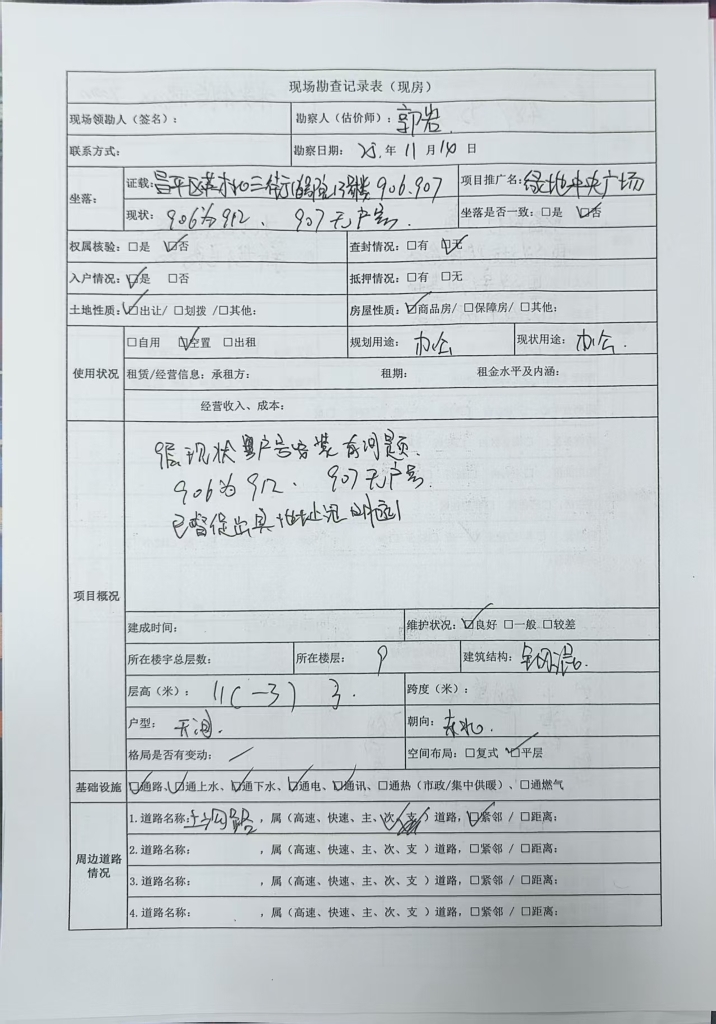 现场勘查记录表（现房）
现场领勘人（签名）： 勘察人（估价师）：郭岩
联系方式： 勘察日期：25.年11月14日
坐落： 证载：昌平区 北三街 号楼906.907 项目推广名：绿地中央广场
现状：906为912、907无户号. 坐落是否一致：□是 ☑否
权属核验：□是 ☑否 查封情况：□有 ☑无
入户情况：☑是 □否 抵押情况：□有 □无
土地性质：☑出让/ □划拨 /□其他： 房屋性质：☑商品房/ □保障房/ □其他：
使用状况 □自用 ☑空置 □出租 规划用途：办公 现状用途：办公.
租赁/经营信息：承租方： 租期： 租金水平及内涵：
经营收入、成本：
项目概况
9层现状 户号安装有问题.
906为912、907无户号.
已督促出具地址证明
建成时间： 维护状况：☑良好 □一般 □较差
所在楼宇总层数： 所在楼层：9 建筑结构：钢混.
层高（米）：11(-3) 3. 跨度（米）：
户型：开间. 朝向：东北.
格局是否有变动：／ 空间布局：□复式 ☑平层
基础设施 ☑通路、☑通上水、☑通下水、☑通电、☑通讯、□通热（市政/集中供暖）、□通燃气
周边道路情况
1.道路名称： 路，属（高速、快速、主、次、支）道路，☑紧邻 / □距离：
2.道路名称： ，属（高速、快速、主、次、支 ）道路，□紧邻 / □距离：
3.道路名称： ，属（高速、快速、主、次、支 ）道路，□紧邻 / □距离：
4.道路名称： ，属（高速、快速、主、次、支 ）道路，□紧邻 / □距离：